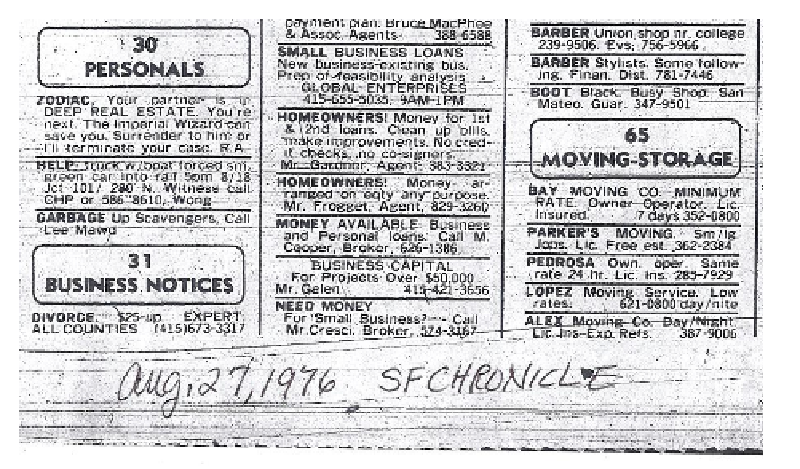 30
PERSONALS
ZODIAC, Your partner is in
DEEP REAL ESTATE. You're
next. The Imperial Wizard can
save you. Surrender to him or
I'll terminate your case. R.A.
HELP, truck w/boat forced sml
green car into rail 5pm 8/18
Jct 101/ 280 N. Witness call
CHP or 586-8610, Wong
GARBAGE Up Scavengers, Call
Lee Mawd
31
BUSINESS NOTICES
DIVORCE. $25-up. EXPERT
ALL COUNTIES (415)673-3317
payment plan. Bruce MacPhee
& Assoc. Agents 388-6588
SMALL BUSINESS LOANS
New business-existing bus.
Prep of feasibility analysis
GLOBAL ENTERPRISES
415-655-5035, 9AM-1PM
HOMEOWNERS! Money for 1st
& 2nd loans. Clean up bills,
make improvements. No cred-
it checks, no co-signers.
Mr. Gardner, Agent, 383-3321
HOMEOWNERS! Money ar-
ranged on eqty any purpose.
Mr. Frogget, Agent, 829-3260
MONEY AVAILABLE Business
and Personal loans. Call M.
Cooper, Broker, 626-1386
BUSINESS CAPITAL
For Projects Over $50,000
Mr. Gelen 415-421-3656
NEED MONEY
For Small Business? - Call
Mr. Cresci, Broker, 574-3167
BARBER Union shop nr. college
239-9506. Evs, 756-5966
BARBER Stylists. Some follow-
ing. Finan. Dist. 781-7446
BOOT Black. Busy Shop. San
Mateo. Guar. 347-9501
65
MOVING-STORAGE
BAY MOVING CO. MINIMUM
RATE. Owner Operator. Lic.
Insured. 7 days 352-0800
PARKER'S MOVING. Sm/lg
Jobs. Lic. Free est. 362-2384
PEDROSA Own. oper. Same
rate 24 hr. Lic. Ins. 285-7929
LOPEZ Moving Service. Low
rates. 621-0800 day/nite
ALEX Moving Co. Day/Night
Lic.-Ins-Exp. Refs. 387-9006
Aug. 27, 1976 SF CHRONICLE